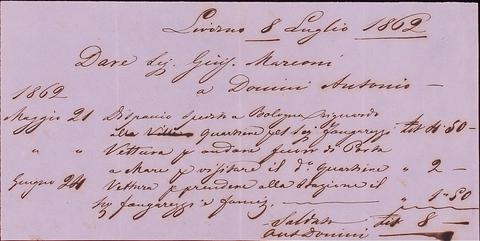 Livorno 8 Luglio 1862
Dare Sig. Giug. Marconi
a Donini Antonio
1862
Maggio 21 Dispacio spedito a Bologna riguardo
alla Villa quartiere pel Sig. Fangarezzi 4.50
" " Vettura p andare fuori di Porta
a Mare p visitare il do. Quartiere " 2 -
Giugno 24 Vettura p prendere alla Stazione il
Sig Fangarezzi e famig. " 1.50
Saldato 8
Ant Donini